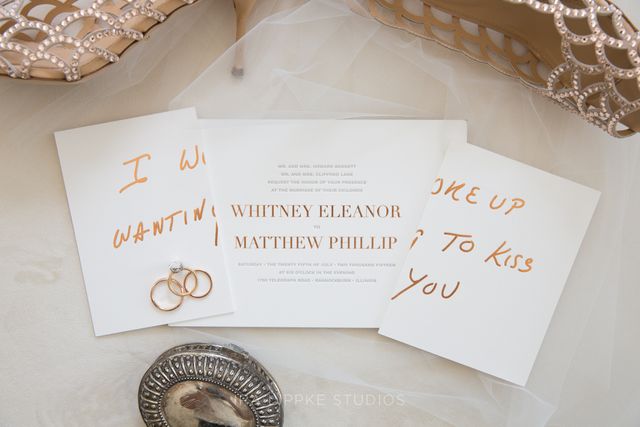 I W
WANTIN
MR. AND MRS.
MR. AND MRS. CLIFFORD LANE
REQUEST THE HONOR OF YOUR PRESENCE
AT THE MARRIAGE OF THEIR CHILDREN
WHITNEY ELEANOR
TO
MATTHEW PHILLIP
SATURDAY • THE TWENTY FIFTH OF JULY • TWO THOUSAND FIFTEEN
AT SIX O'CLOCK IN THE EVENING
TELEGRAPH ROAD • BANNOCKBURN • ILLINOIS
OKE UP
TO KISS
YOU
PPKE STUDIOS